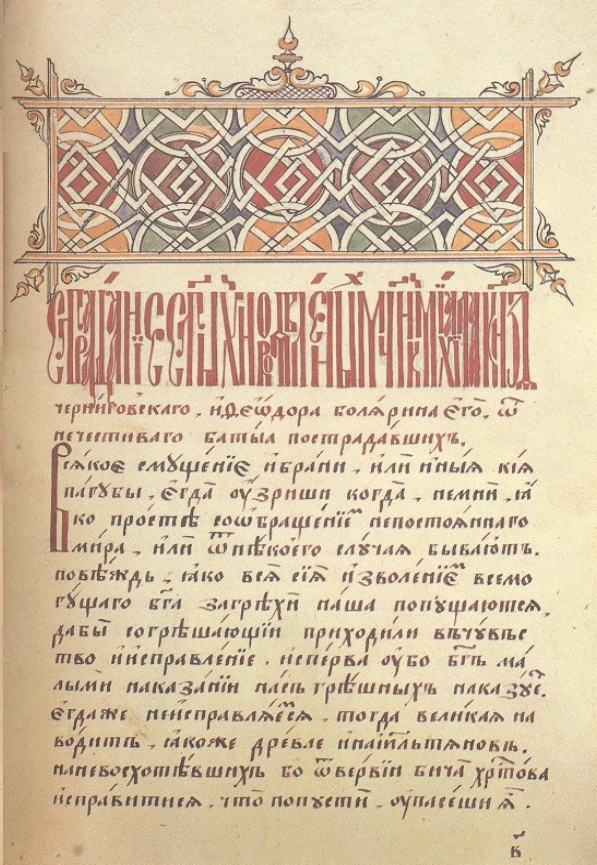 Страда́нїе ст҃ы́хъ новоѧвле́нны́хъ мч҃нкъ мїхаи́ла кн҃ѕѧ
черни́говскаго, и҆ѳео́дора болѧрина є҆гѡ̀, ѿ
нечестиваго баты́ѧ пострада́вшихъ.
Всѧкое смущенїе и҆брани, и҆лѝ и҆ны́ѧ кїѧ
пагубы, є҆гда̀ оу҆зриши когда̀, немнѝ, ꙗ҆
ко простѣ̀ соѡбраще́нїемъ непостоѧннаго
мира, и҆лѝ ѿнѣкоего слꙋчаѧ быва́ютъ.
повѣ́ждь, ꙗ҆ко всѧ̀ сїѧ̀ и҆зволенїемъ всемо
гꙋщаго бг҃а загрѣхѝ наша попꙋщаютсѧ,
дабы̀ согрѣша́ющїи приходи́ли въчꙋвъс
тво и҆исправле́нїе. и҆сперва оу҆бо бг҃ъ ма́
лыми наказа́нїи насъ грѣ́шныхъ наказꙋетъ.
є҆гдаже неисправлѧ́емсѧ, тогда̀ великаѧ на
водитъ, ꙗ҆коже дре́вле и҆наі҆и҃льтѧновъ.
наневосхотѣ́вшихъ бо ѿве́рвїи бича̀ хрⷭ҇това
и҆справитисѧ, что̀ попꙋстѝ, оу҆пасеши ѧ҆̀.
в҃